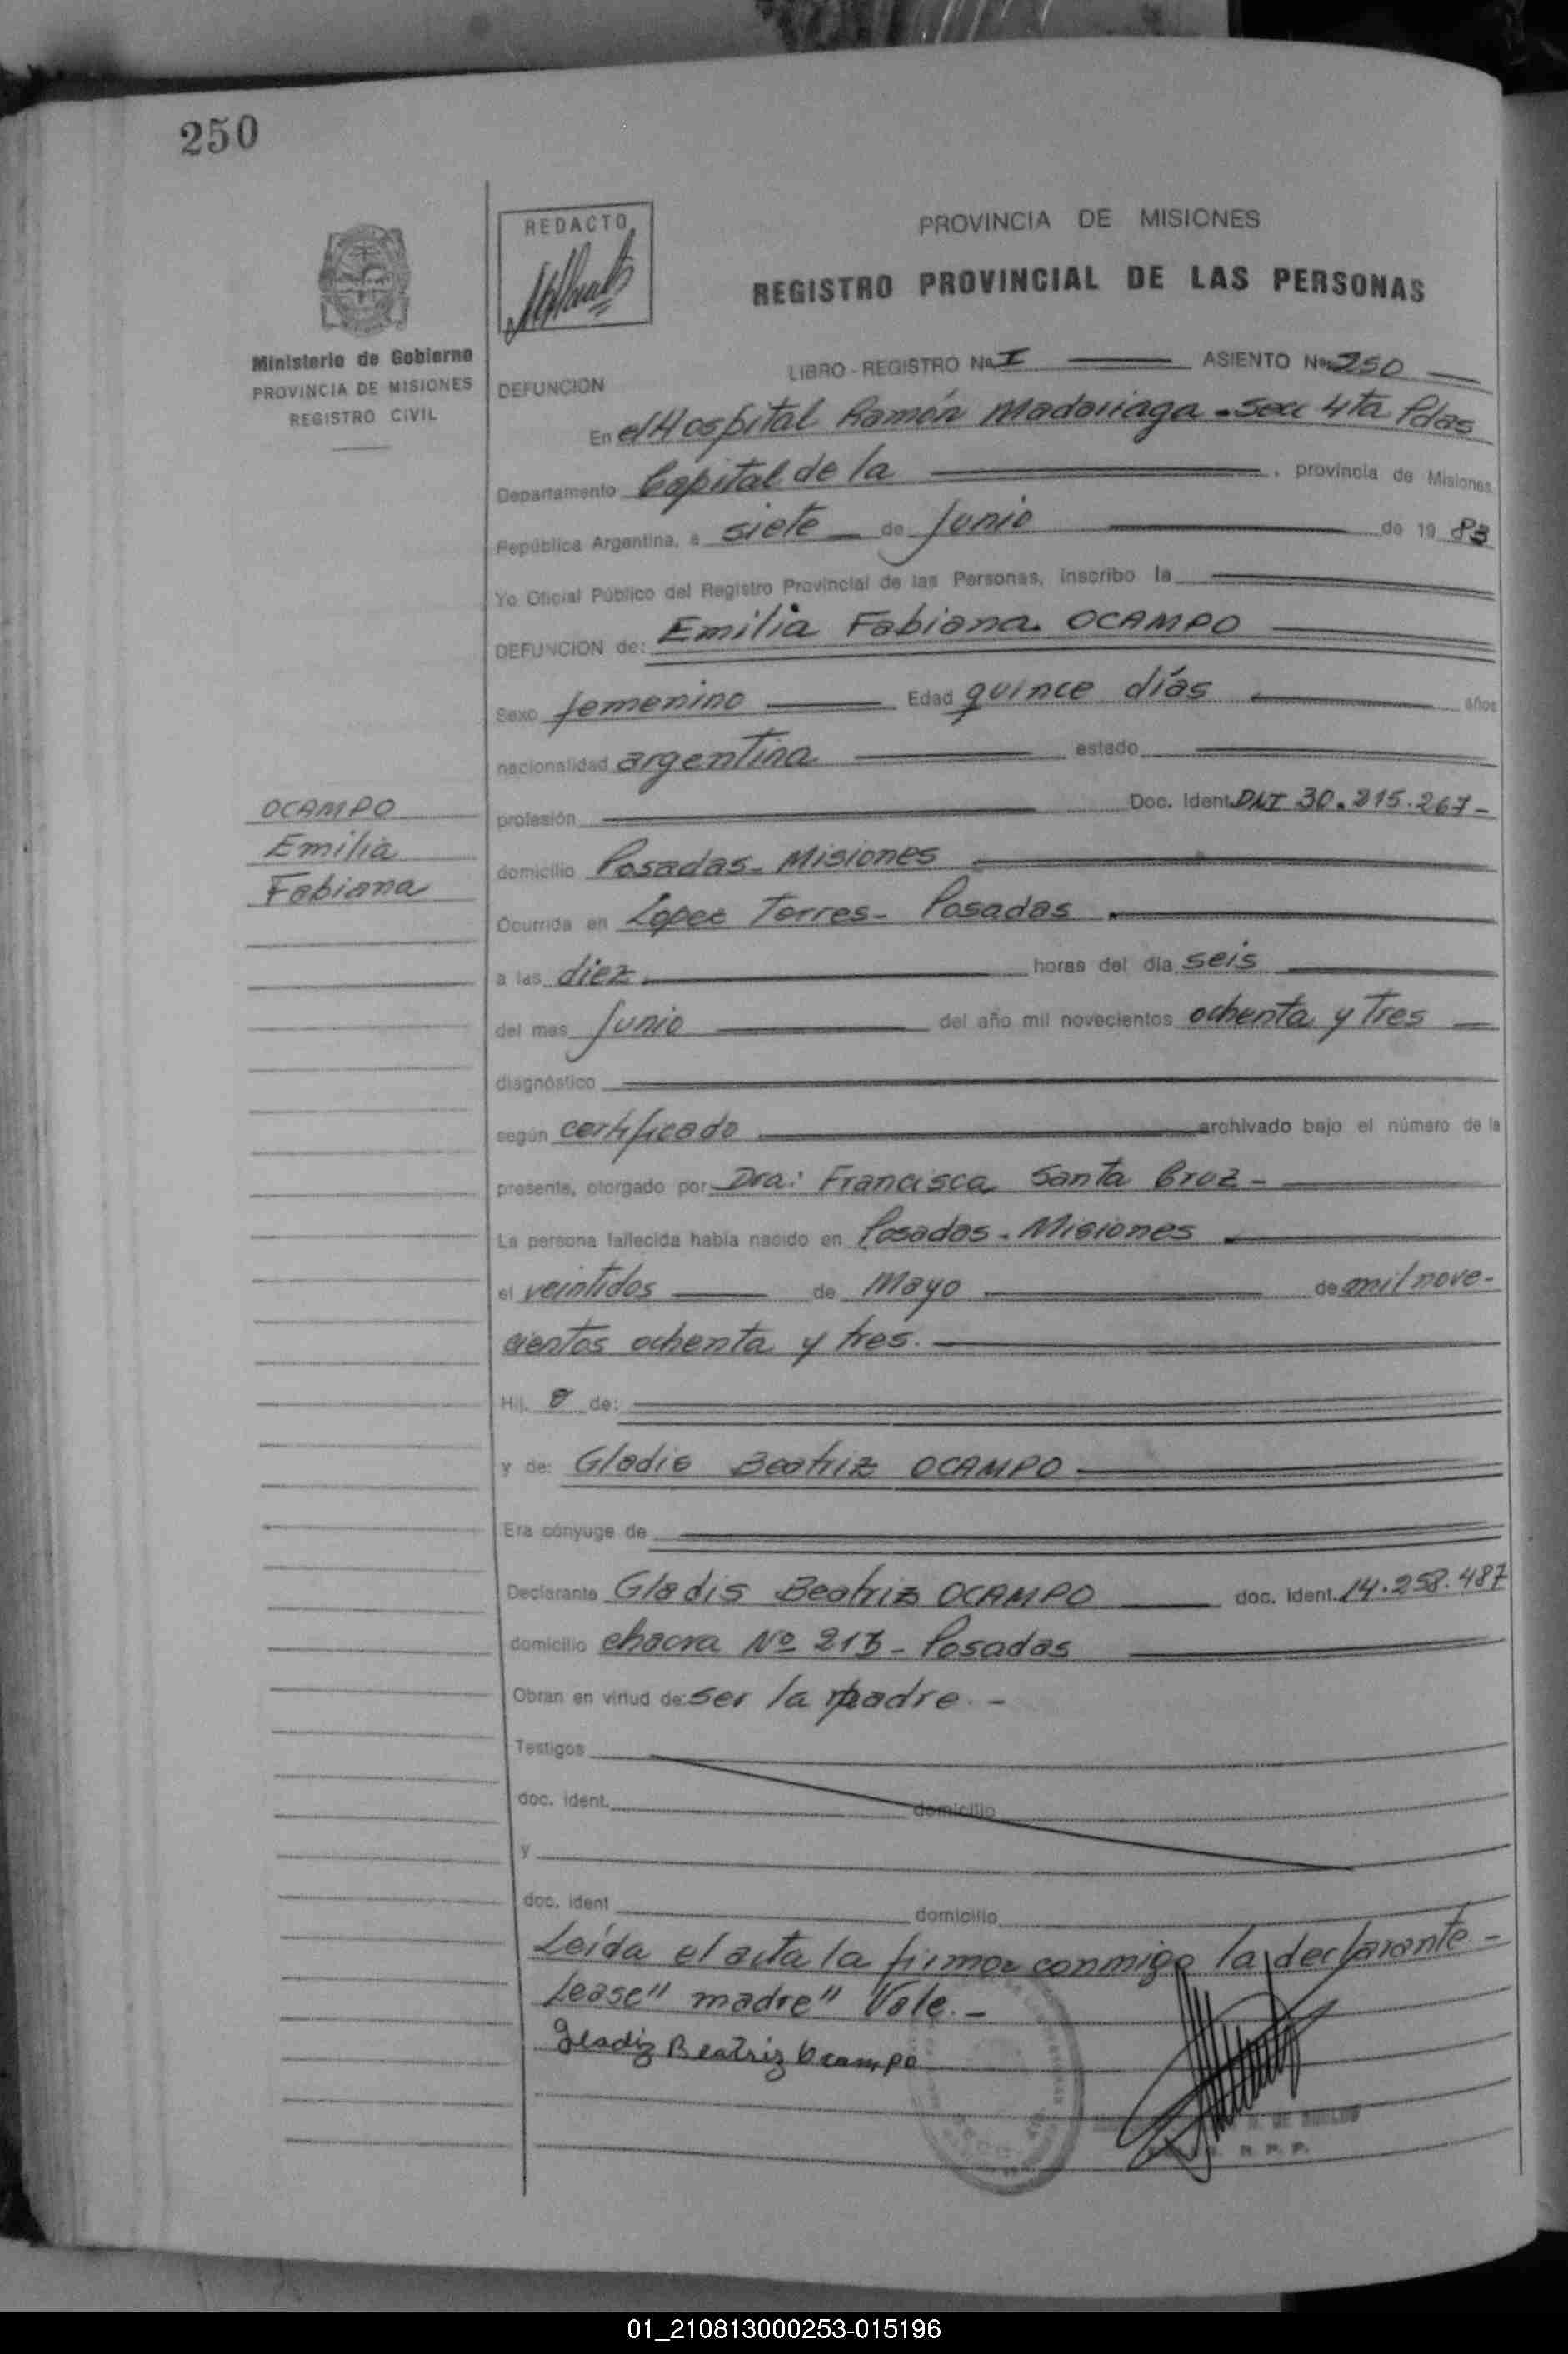 250
REDACTO
PROVINCIA DE MISIONES
REGISTRO PROVINCIAL DE LAS PERSONAS
Ministerio de Gobierno
PROVINCIA DE MISIONES
REGISTRO CIVIL
LIBRO - REGISTRO No I ASIENTO No 250
DEFUNCION
En el Hospital Ramón Madariaga - Sec 4ta Pdas
Departamento Capital de la , provincia de Misiones
República Argentina, a siete de Junio de 19 83
Yo Oficial Público del Registro Provincial de las Personas, inscribo la
DEFUNCION de: Emilia Fabiana OCAMPO
Sexo femenino Edad quince días años
nacionalidad argentina estado
profesión Doc. Ident. DNI 30.215.267-
OCAMPO
Emilia
Fabiana
domicilio Posadas - Misiones
Ocurrida en Lopez Torres - Posadas
a las diez horas del día seis
del mes Junio del año mil novecientos ochenta y tres
diagnóstico
según certificado archivado bajo el número de la
presente, otorgado por Dra: Francisca Santa Cruz -
La persona fallecida había nacido en Posadas - Misiones
el veintidos de Mayo de mil nove-
cientos ochenta y tres.
Hij. de:
y de: Gladis Beatriz OCAMPO
Era cónyuge de
Declarante Gladis Beatriz OCAMPO doc. ident. 14.258.487
domicilio chacra Nº 213 - Posadas
Obran en virtud de: ser la madre. -
Testigos
doc. ident. domicilio
y
doc. ident domicilio
Leída el acta la firma conmigo la declarante -
Lease" madre" Vale. -
Gladiz Beatriz Ocampo
01_210813000253-015196